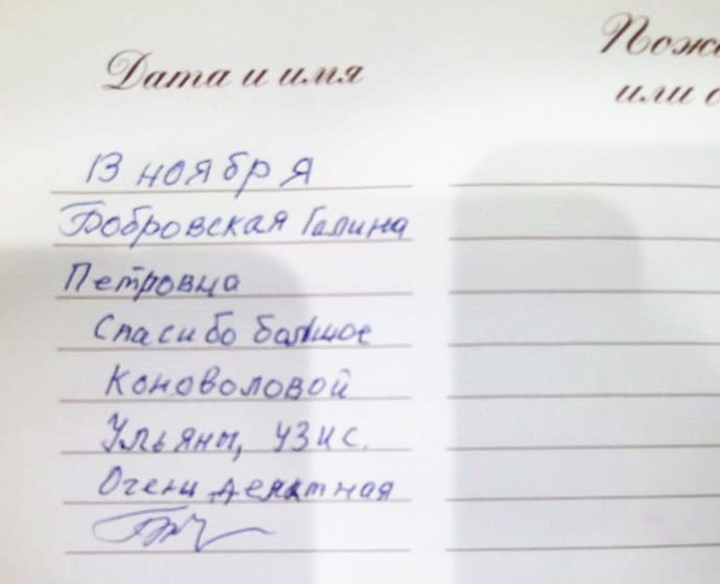 Дата и имя
Пож
или
13 ноября
Бобровская Галина
Петровна
Спасибо большое
Коноволовой
Ульяны, УЗИС.
Очень деликатная